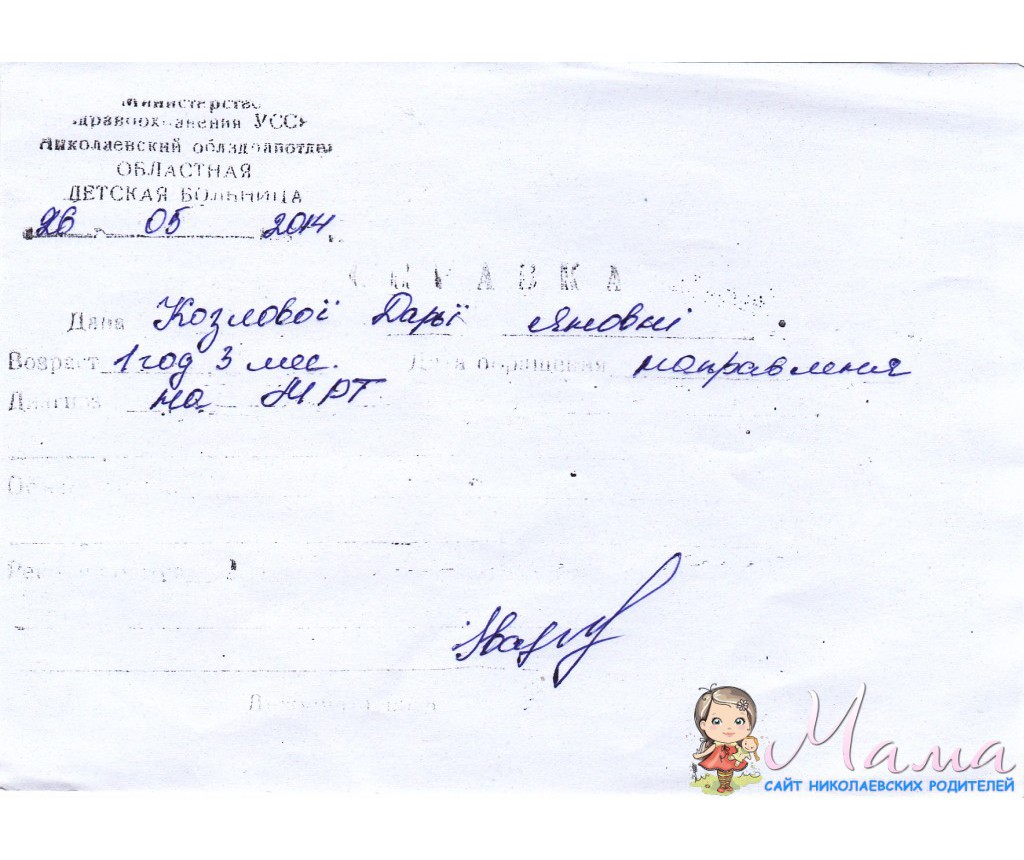 Министерство
дравоохранения УССР
Николаевский облздравотдел
ОБЛАСТНАЯ
ДЕТСКАЯ БОЛЬНИЦА
26 05 2014
СПРАВКА
Дана Козлової Дарьї Яновні
Возраст 1 год 3 мес. Дата обращения направлення
Диагноз на МРТ
Мама
САЙТ НИКОЛАЕВСКИХ РОДИТЕЛЕЙ